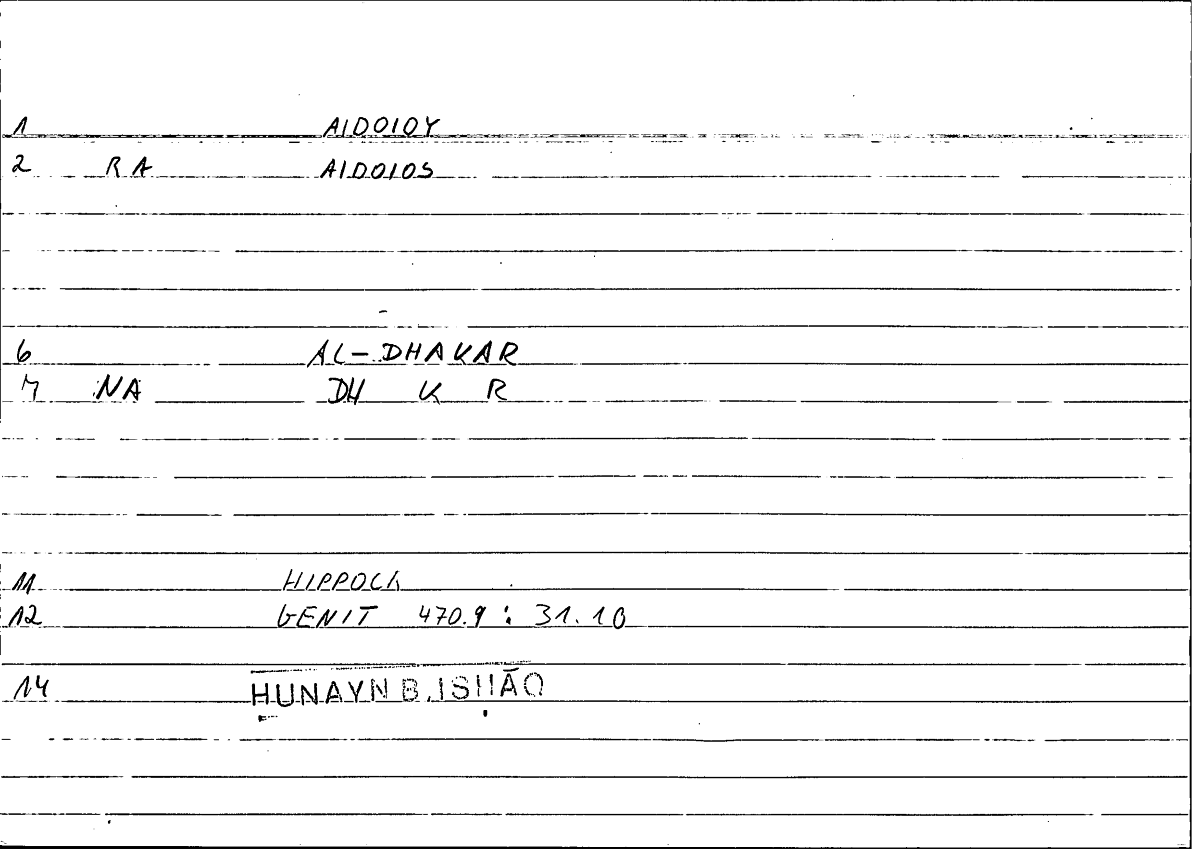 1 AIDOIOY
2 RA AIDOIOS
6 AL-DHAKAR
7 NA DH K R
11 HIPPOCR
12 GENIT 470.9 : 31.10
14 ḤUNAYN B. ISḤĀQ